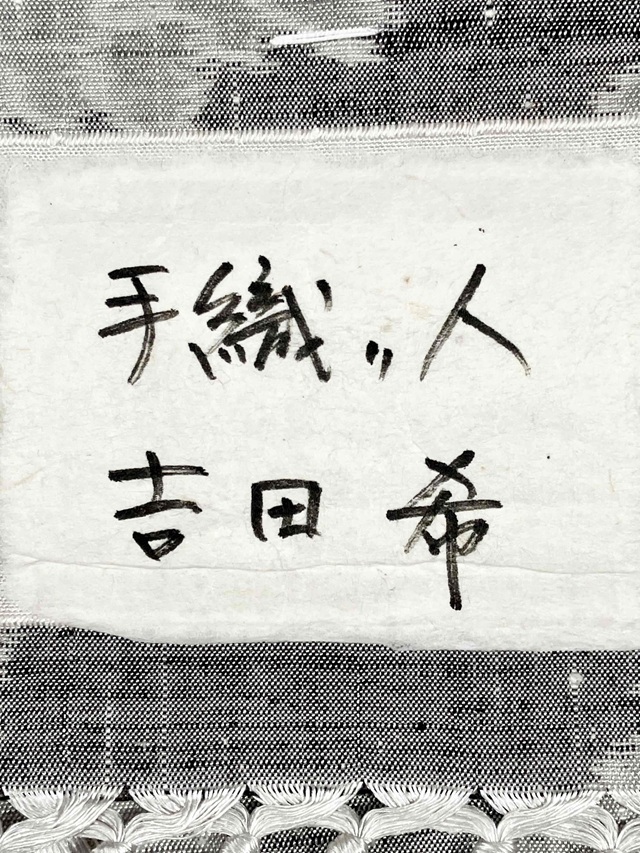 手織り人
吉田 希